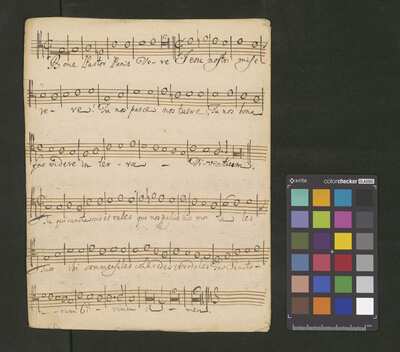 Bone Pastor Panis Ve- re Jesu nostri mise-
re- re: Tu nos pasce nos tuere, Tu nos bona
fac videre in ter- ra - Viventium.
Tu qui cuncta scis et vales qui nos pascis hic mor- ta les
tuos ibi commensales cohæredes et sodales fac Sancto-
rum Ci- vium - men
x-rite colorchecker CLASSIC